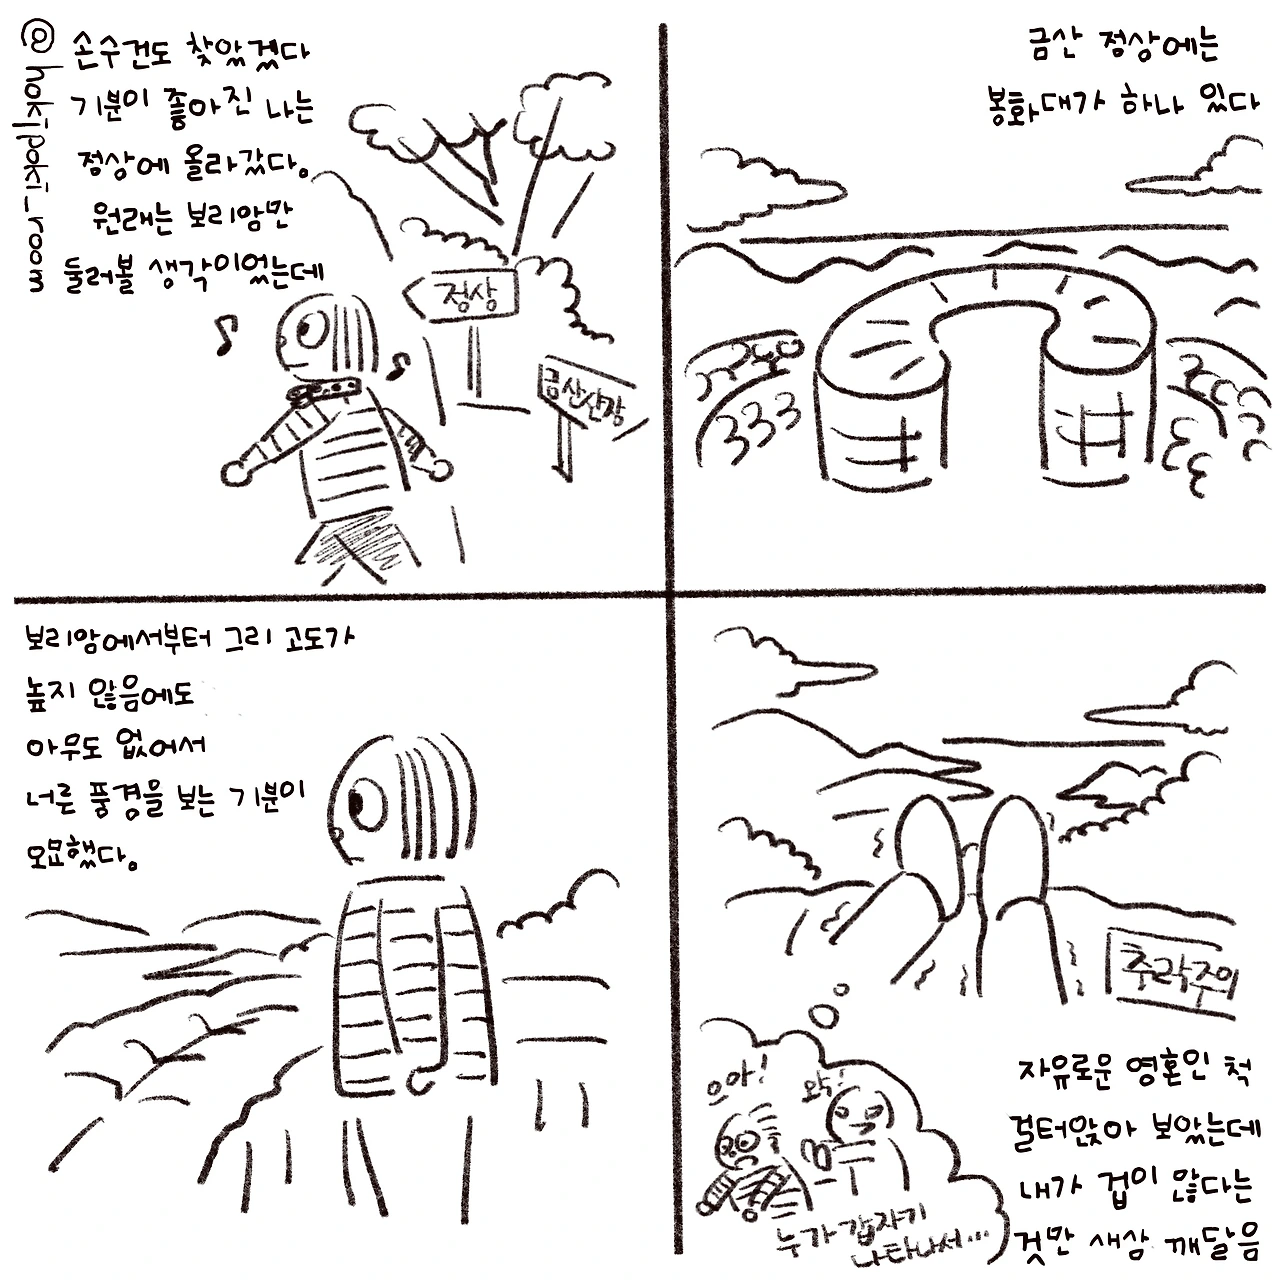 @hokipoki_room
손수건도 찾았겠다
기분이 좋아진 나는
정상에 올라갔다.
원래는 보리암만
둘러볼 생각이었는데
정상
금산산장
금산 정상에는
봉화대가 하나 있다
보리암에서부터 그리 고도가
높지 않음에도
아무도 없어서
너른 풍경을 보는 기분이
오묘했다.
추락주의
으아!
왁!
누가 갑자기
나타나서...
자유로운 영혼인 척
걸터앉아 보았는데
내가 겁이 많다는
것만 새삼 깨달음